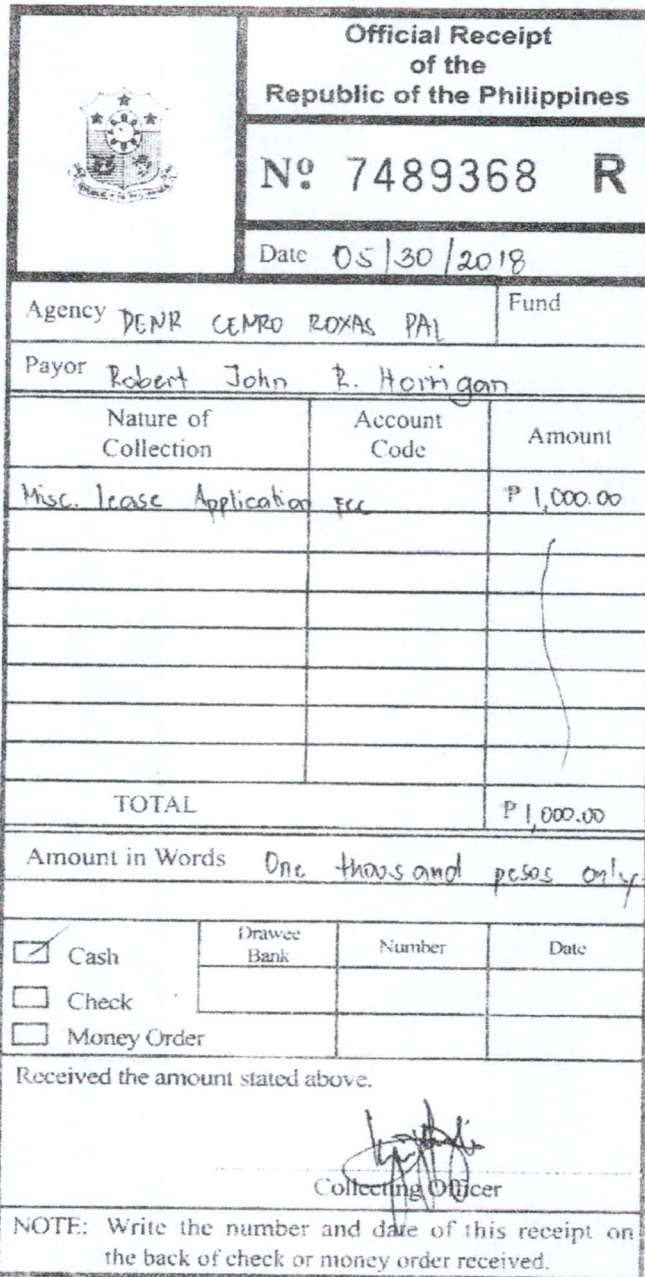 Official Receipt
of the
Republic of the Philippines
Nº 7489368 R
Date 05/30/2018
Agency DENR CENRO ROXAS PAL
Fund
Payor Robert John R. Horrigan
Nature of Collection
Account Code
Amount
Misc. lease Application Fee ₱ 1,000.00
TOTAL ₱ 1,000.00
Amount in Words One thousand pesos only
Cash
Drawee Bank
Number
Date
Check
Money Order
Received the amount stated above.
Collecting Officer
NOTE: Write the number and date of this receipt on
the back of check or money order received.